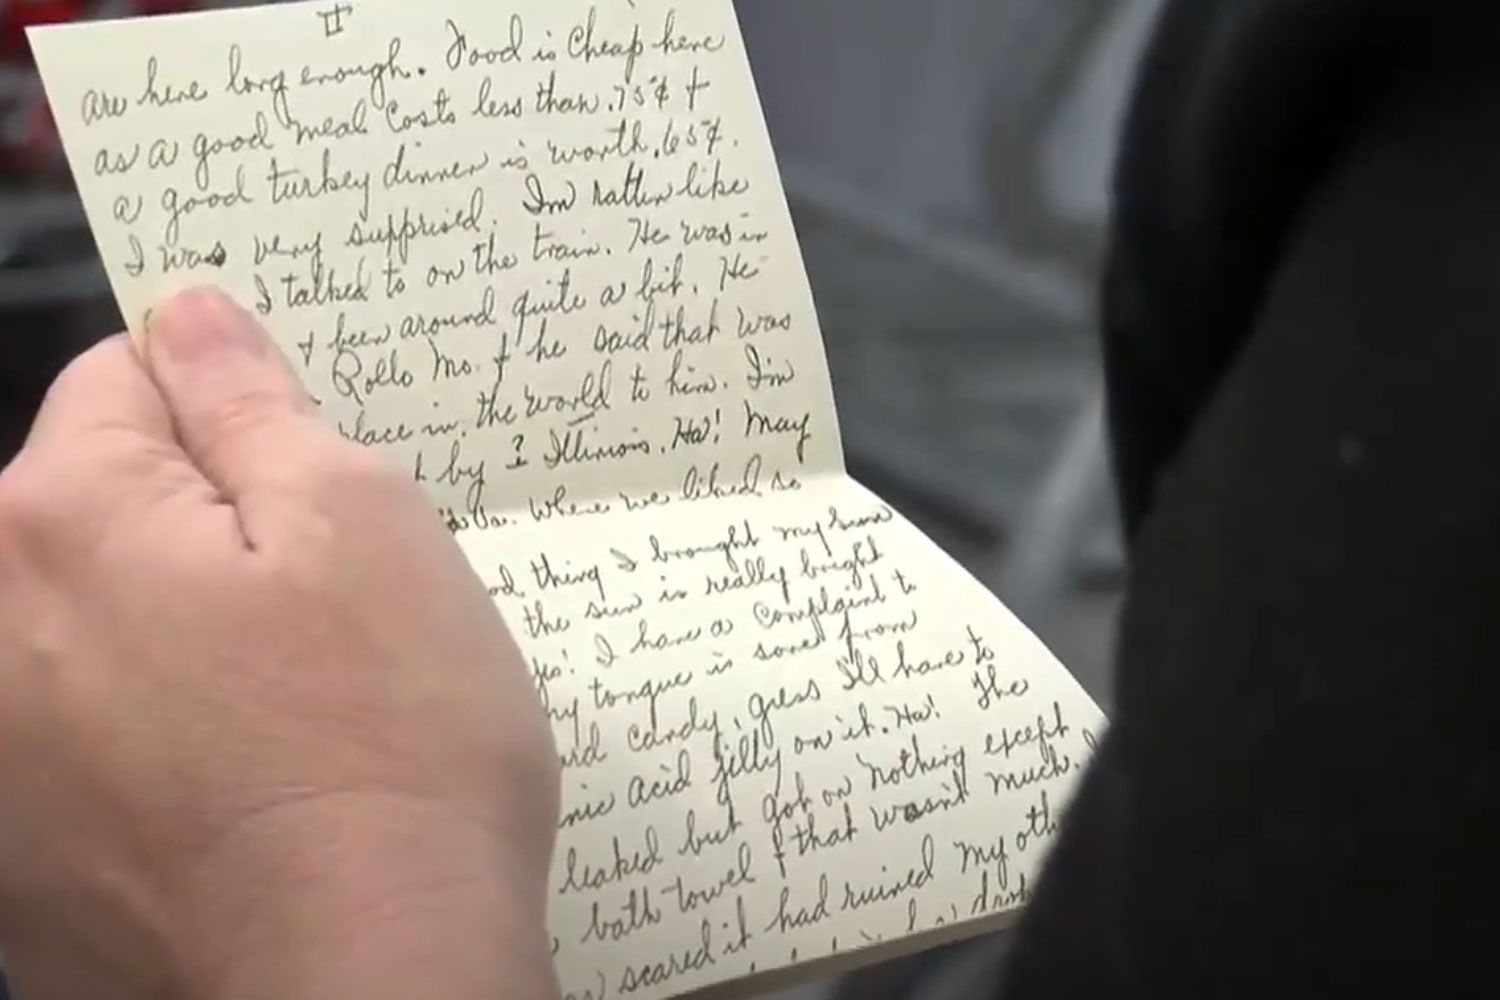 II
are here long enough. Food is cheap here
as a good meal costs less than .75¢ +
a good turkey dinner is worth .65¢.
I was very supprised. I'm rather like
I talked to on the train. He was in
+ been around quite a bit. He
Rollo Mo. + he said that was
place in the world to him. I'm
by ? Illinois. Ha! May
Va. where we liked so
thing I brought my sun
the sun is really bright
yes! I have a complaint to
my tongue is sore from
candy, guess I'll have to
acid jelly on it. Ha! The
leaked but got on nothing except
bath towel + that wasn't much. I
scared it had ruined my